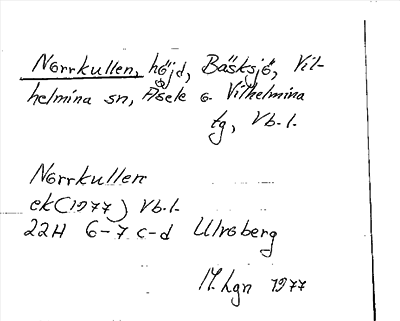 Norrkullen, höjd, Bäsksjö, Vil-
helmina sn, Åsele o. Vilhelmina
tg, Vb.l.
Norrkullen
ek (1977) Vb.l.
22H 6-7 c-d Ulvoberg
M. Lgn 1977